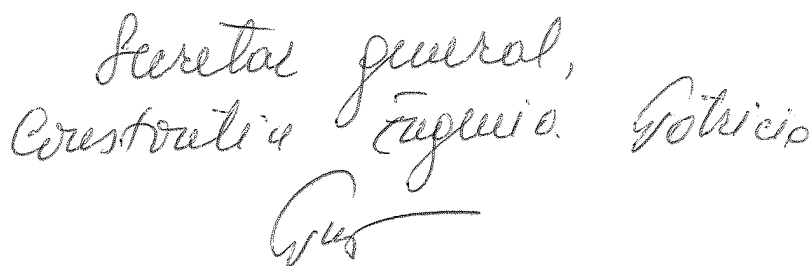 Secretar general,
Constantin Eugenia Patricia